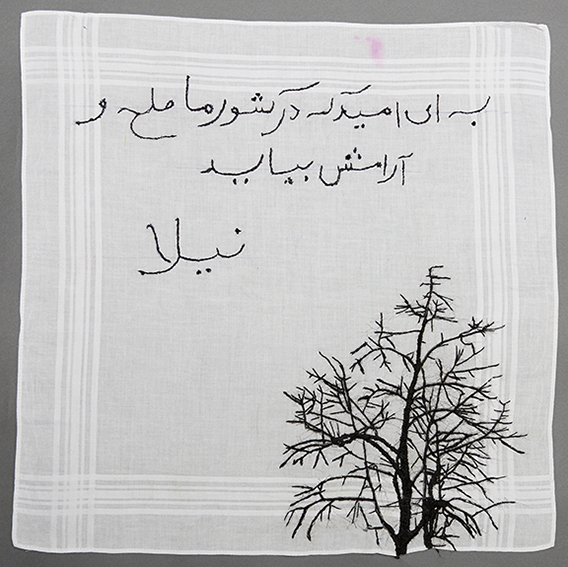 به ای امید که در کشور ما صلح و
آرامش بیاید
نیلا